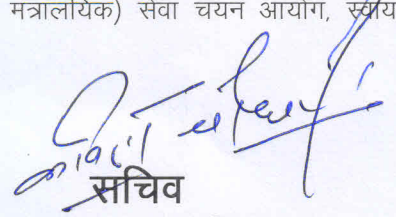 मंत्रालयिक) सेवा चयन आयोग, स्वाय
सचिव